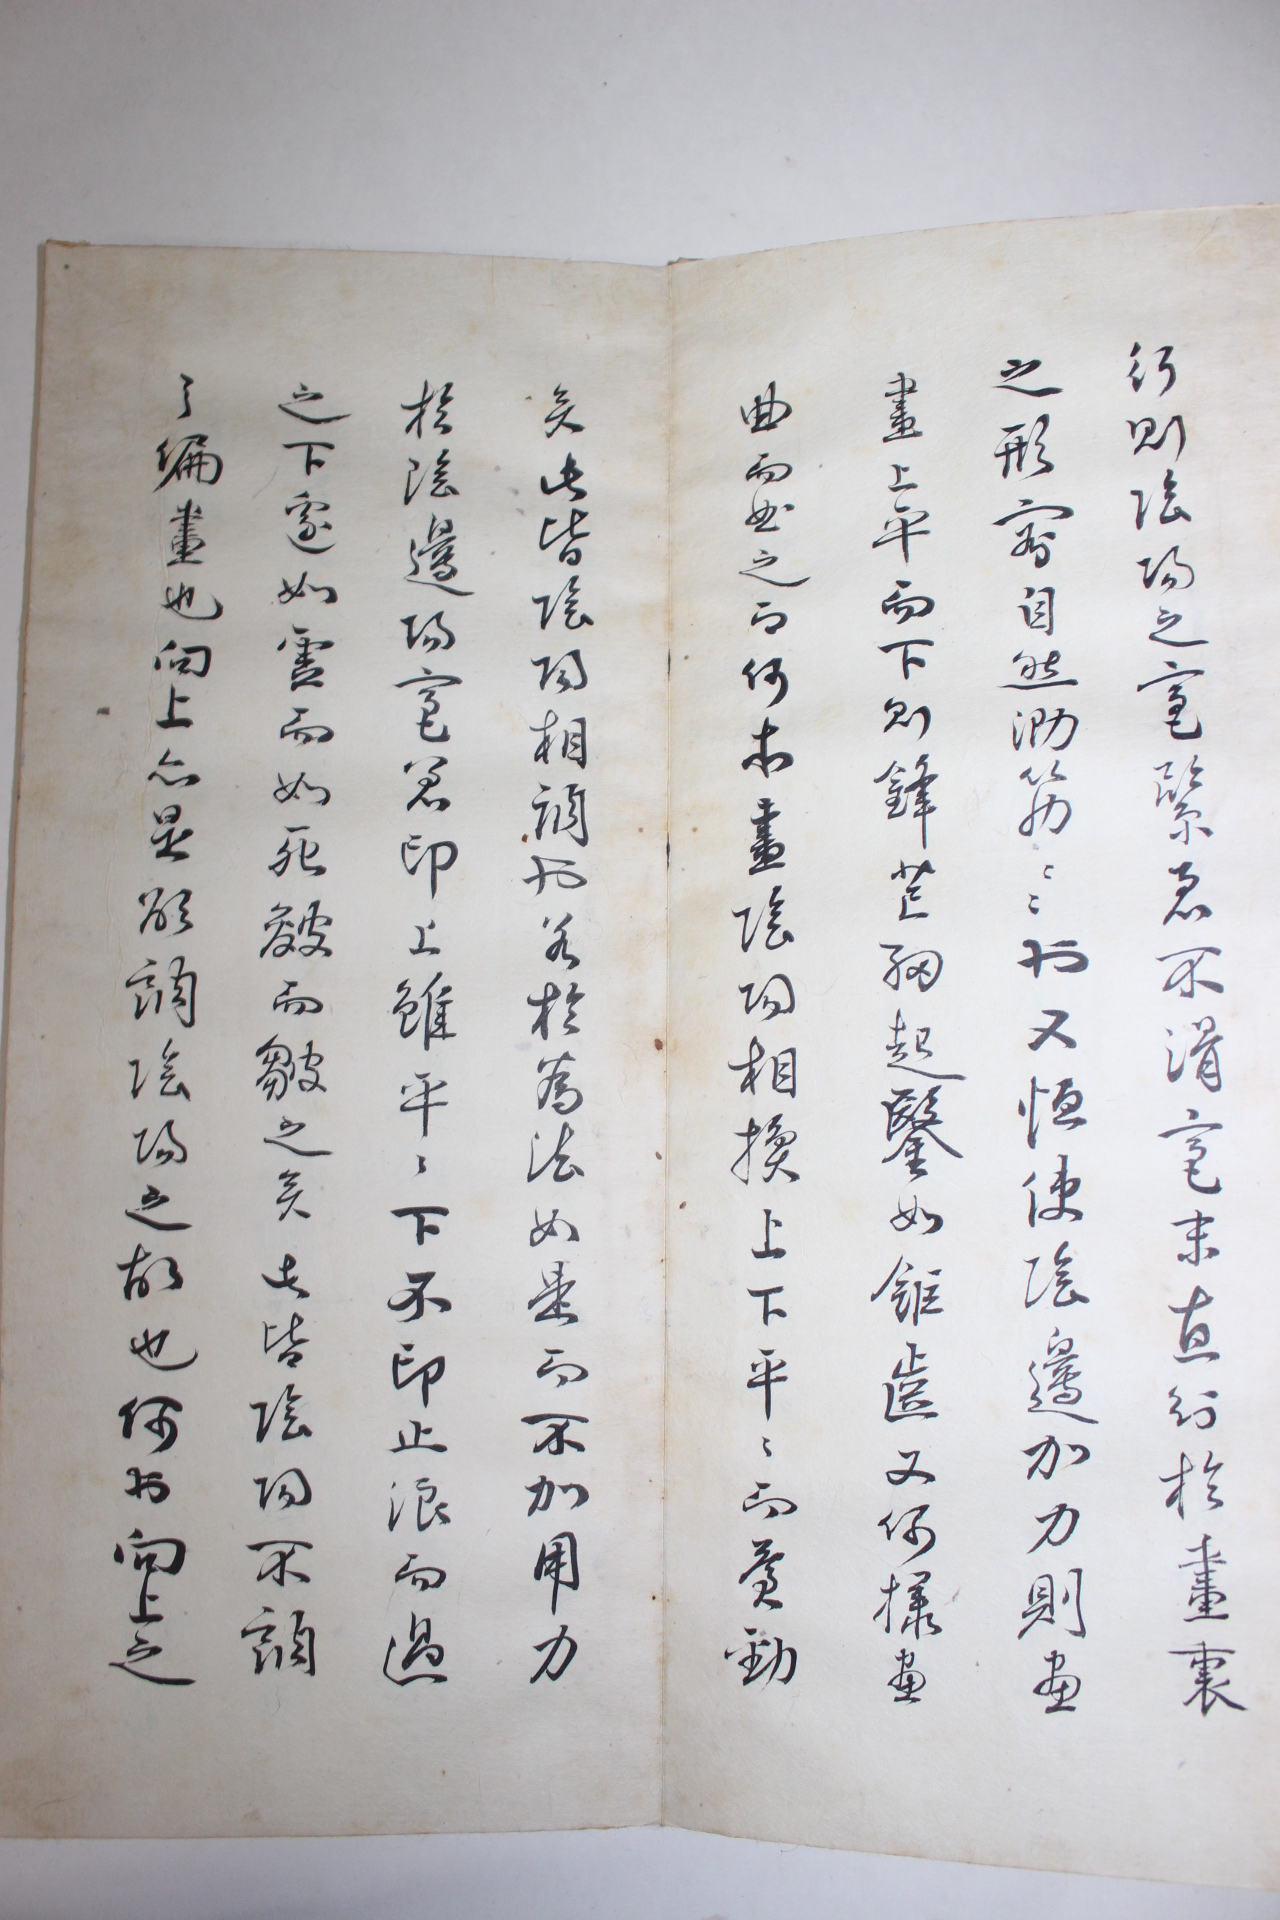 行則陰陽之毫緊急不滑毫末直行於畫裏
之形自然泐筋〻〻者又恒使陰邊加力則畫
畫上平而下則鋒芒起鑿如鋸齒又何樣畫
曲而曲之而何畫陰陽相換上下平〻而蒼勁
矣此皆陰陽相調者若於爲法如是而不加用力
於陰邊陽毫印上雖平〻下不印止浪而過
之下邊如雲而如死皴而皺之矣此皆陰陽不調
了編畫也向上亦是能調陰陽之故也何者向上之